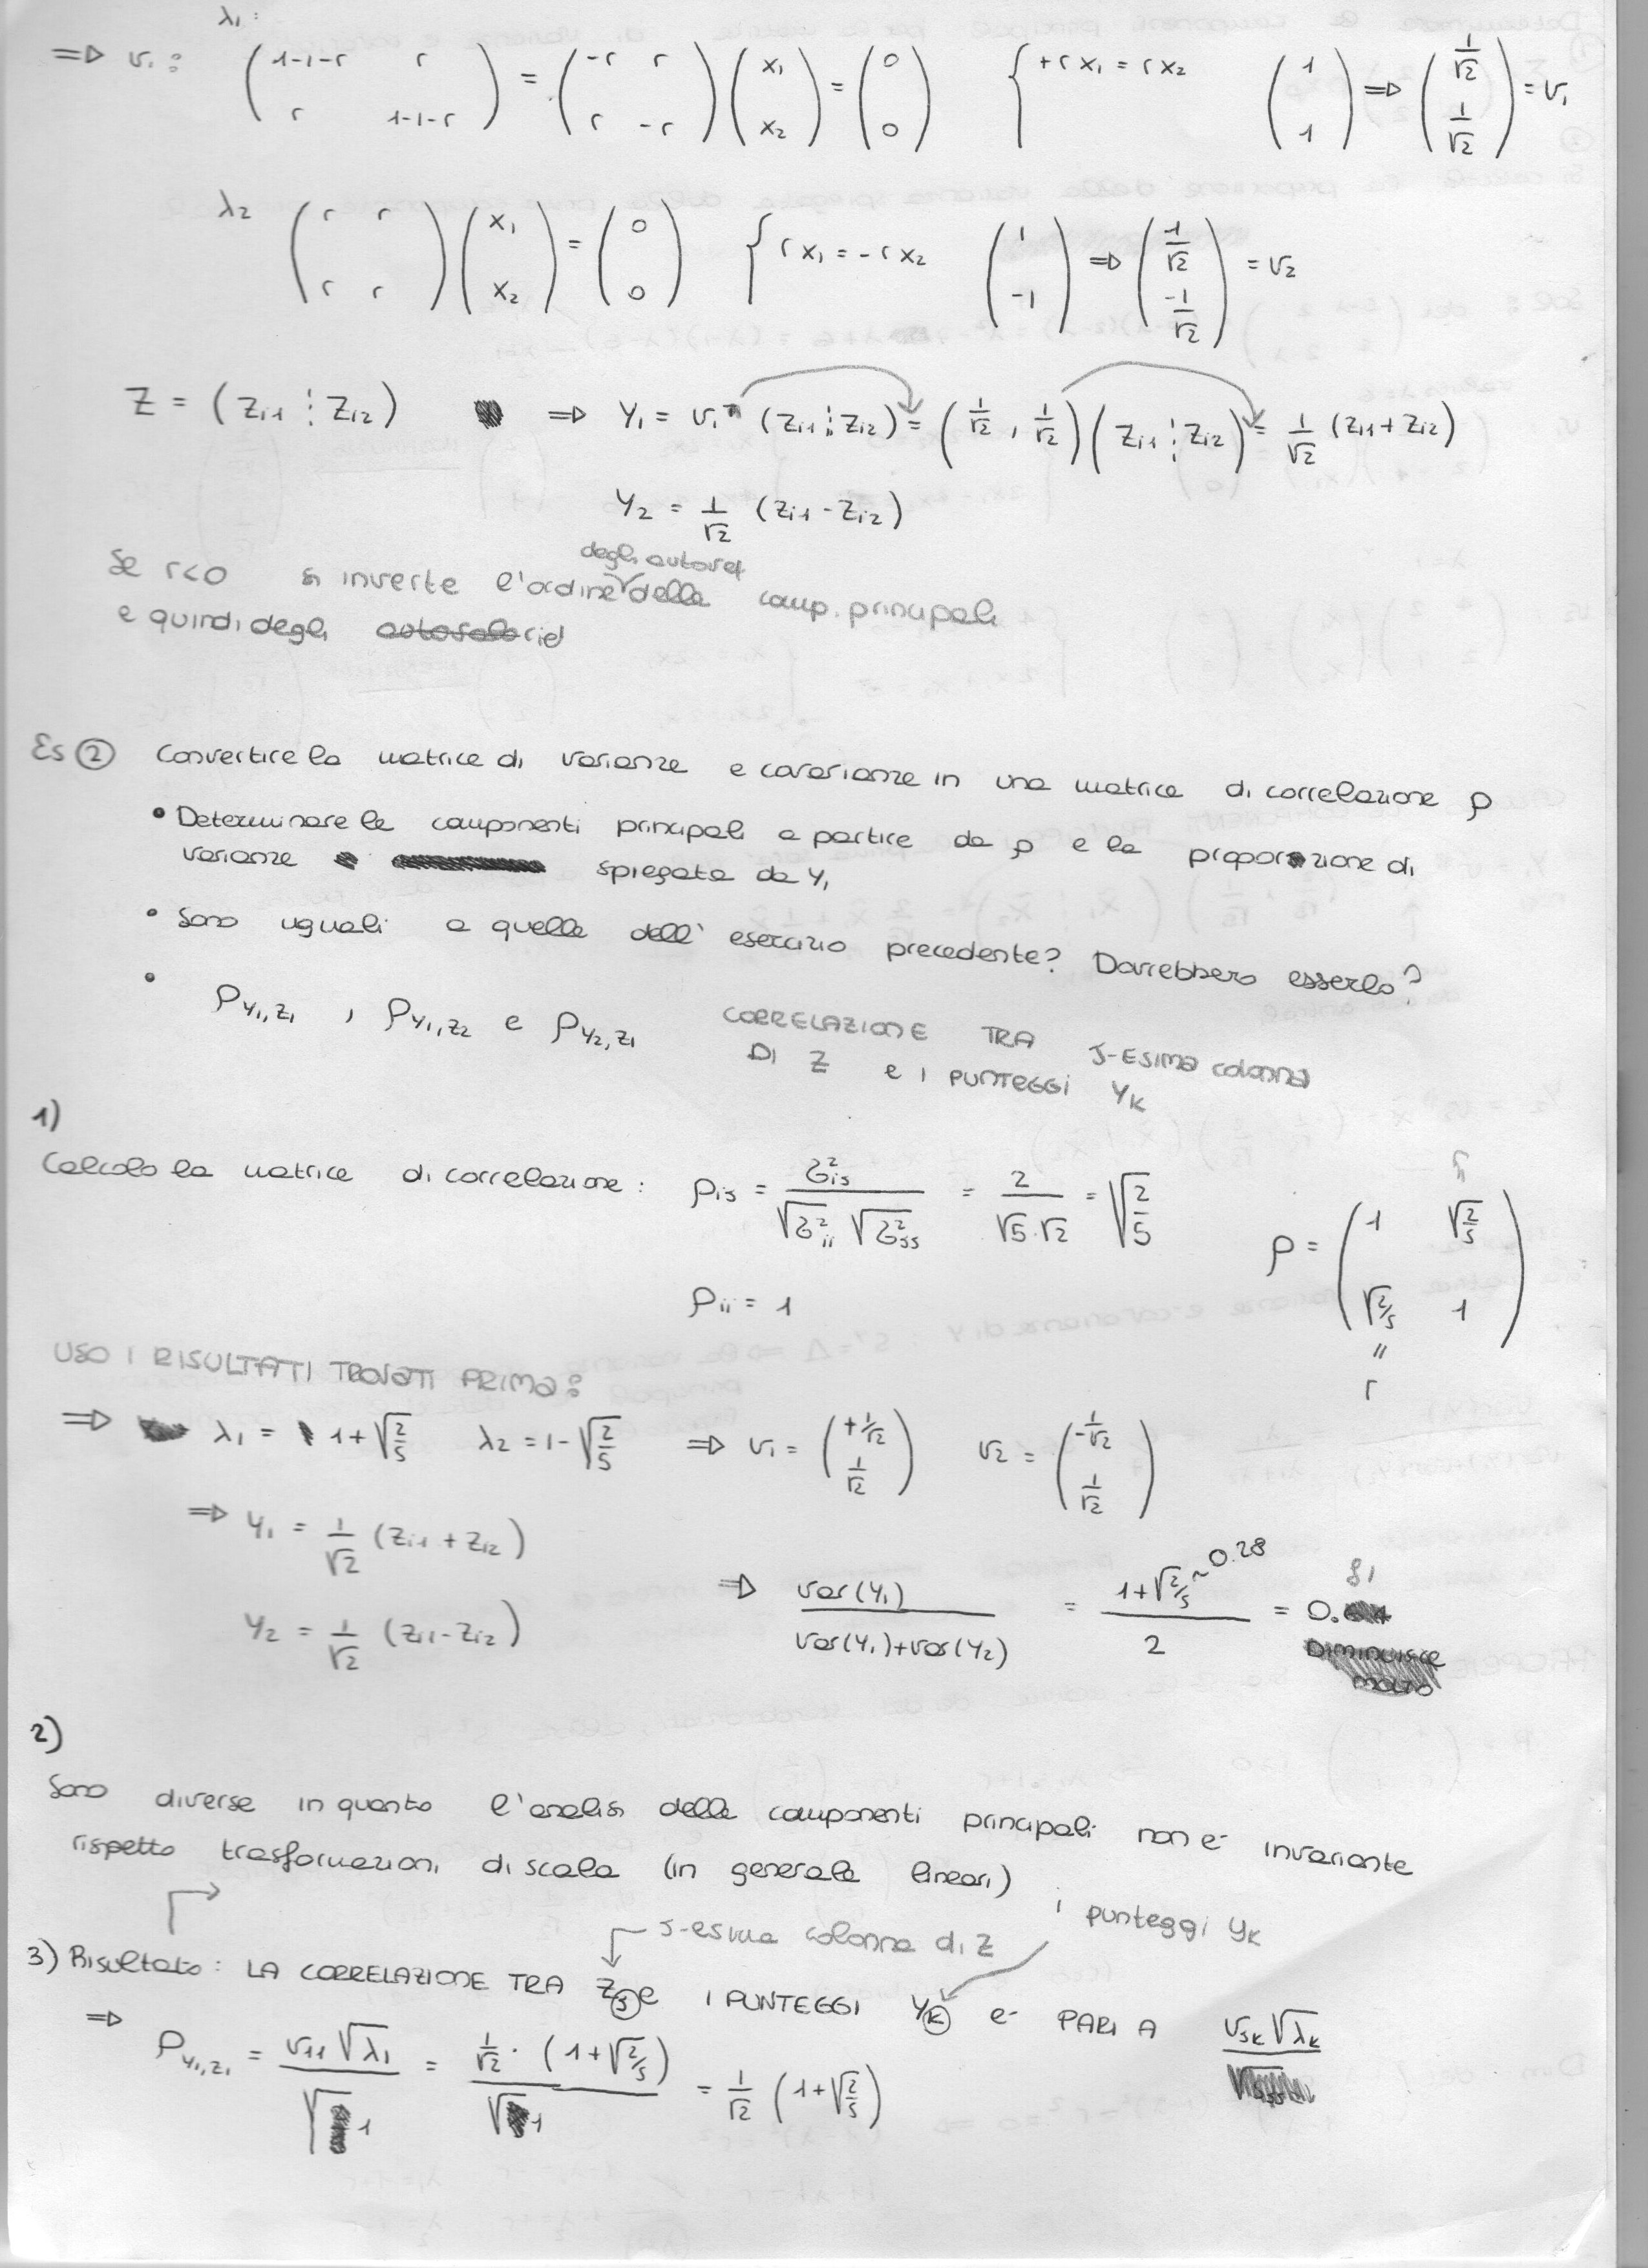 λ₁:
=> v₁: (1-1-r r / r 1-1-r) = (-r r / r -r)(x₁ / x₂) = (0 / 0) { +r x₁ = r x₂ (1 / 1) => (1/√2 / 1/√2) = v₁
λ₂ (r r / r r)(x₁ / x₂) = (0 / 0) { r x₁ = - r x₂ (1 / -1) => (1/√2 / -1/√2) = v₂
Z = (Zi1 ⋮ Zi2) => Y₁ = v₁ᵀ (Zi1 ⋮ Zi2) = (1/√2 , 1/√2)(Zi1 ⋮ Zi2) = 1/√2 (Zi1 + Zi2)
Y₂ = 1/√2 (Zi1 - Zi2)
degli autovet
Se r<0 si inverte l'ordine delle comp. principali
e quindi degli
Es ② Convertire la matrice di varianze e covarianze in una matrice di correlazione ρ
• Determinare le componenti principali a partire da ρ e la proporzione di
varianza spiegata da Y₁
• Sono uguali a quelle dell' esercizio precedente? Dovrebbero esserlo?
• ρY₁,Z₁ , ρY₁,Z₂ e ρY₂,Z₁ CORRELAZIONE TRA J-ESIMA colonna
DI Z e i PUNTEGGI YK
1)
Calcolo la matrice di correlazione: ρij = σ²ij / √σ²ii √σ²jj = 2 / √5·√2 = √2/5 ρ = (1 √2/5 / √2/5 1)
ρii = 1
"
r
USO I RISULTATI TROVATI PRIMA:
=> λ₁ = 1+√2/5 λ₂ = 1-√2/5 => v₁ = (+1/√2 / 1/√2) v₂ = (-1/√2 / 1/√2)
=> Y₁ = 1/√2 (Zi1 + Zi2)
=> var(Y₁) / var(Y₁)+var(Y₂) = 1+√2/5 ~0.28 / 2 = 0.81
Y₂ = 1/√2 (Zi1 - Zi2)
DIMINUISCE
molto
2)
Sono diverse in quanto l'analisi delle componenti principali non è invariante
rispetto trasformazioni di scala (in generale lineari)
J-esima colonna di Z i punteggi YK
3) Risultato: LA CORRELAZIONE TRA ZJ e I PUNTEGGI YK è PARI A vJK√λK
=> ρY₁,Z₁ = v₁₁√λ₁ / √1 = 1/√2 · (1+√2/5) / √1 = 1/√2 (1+√2/5)